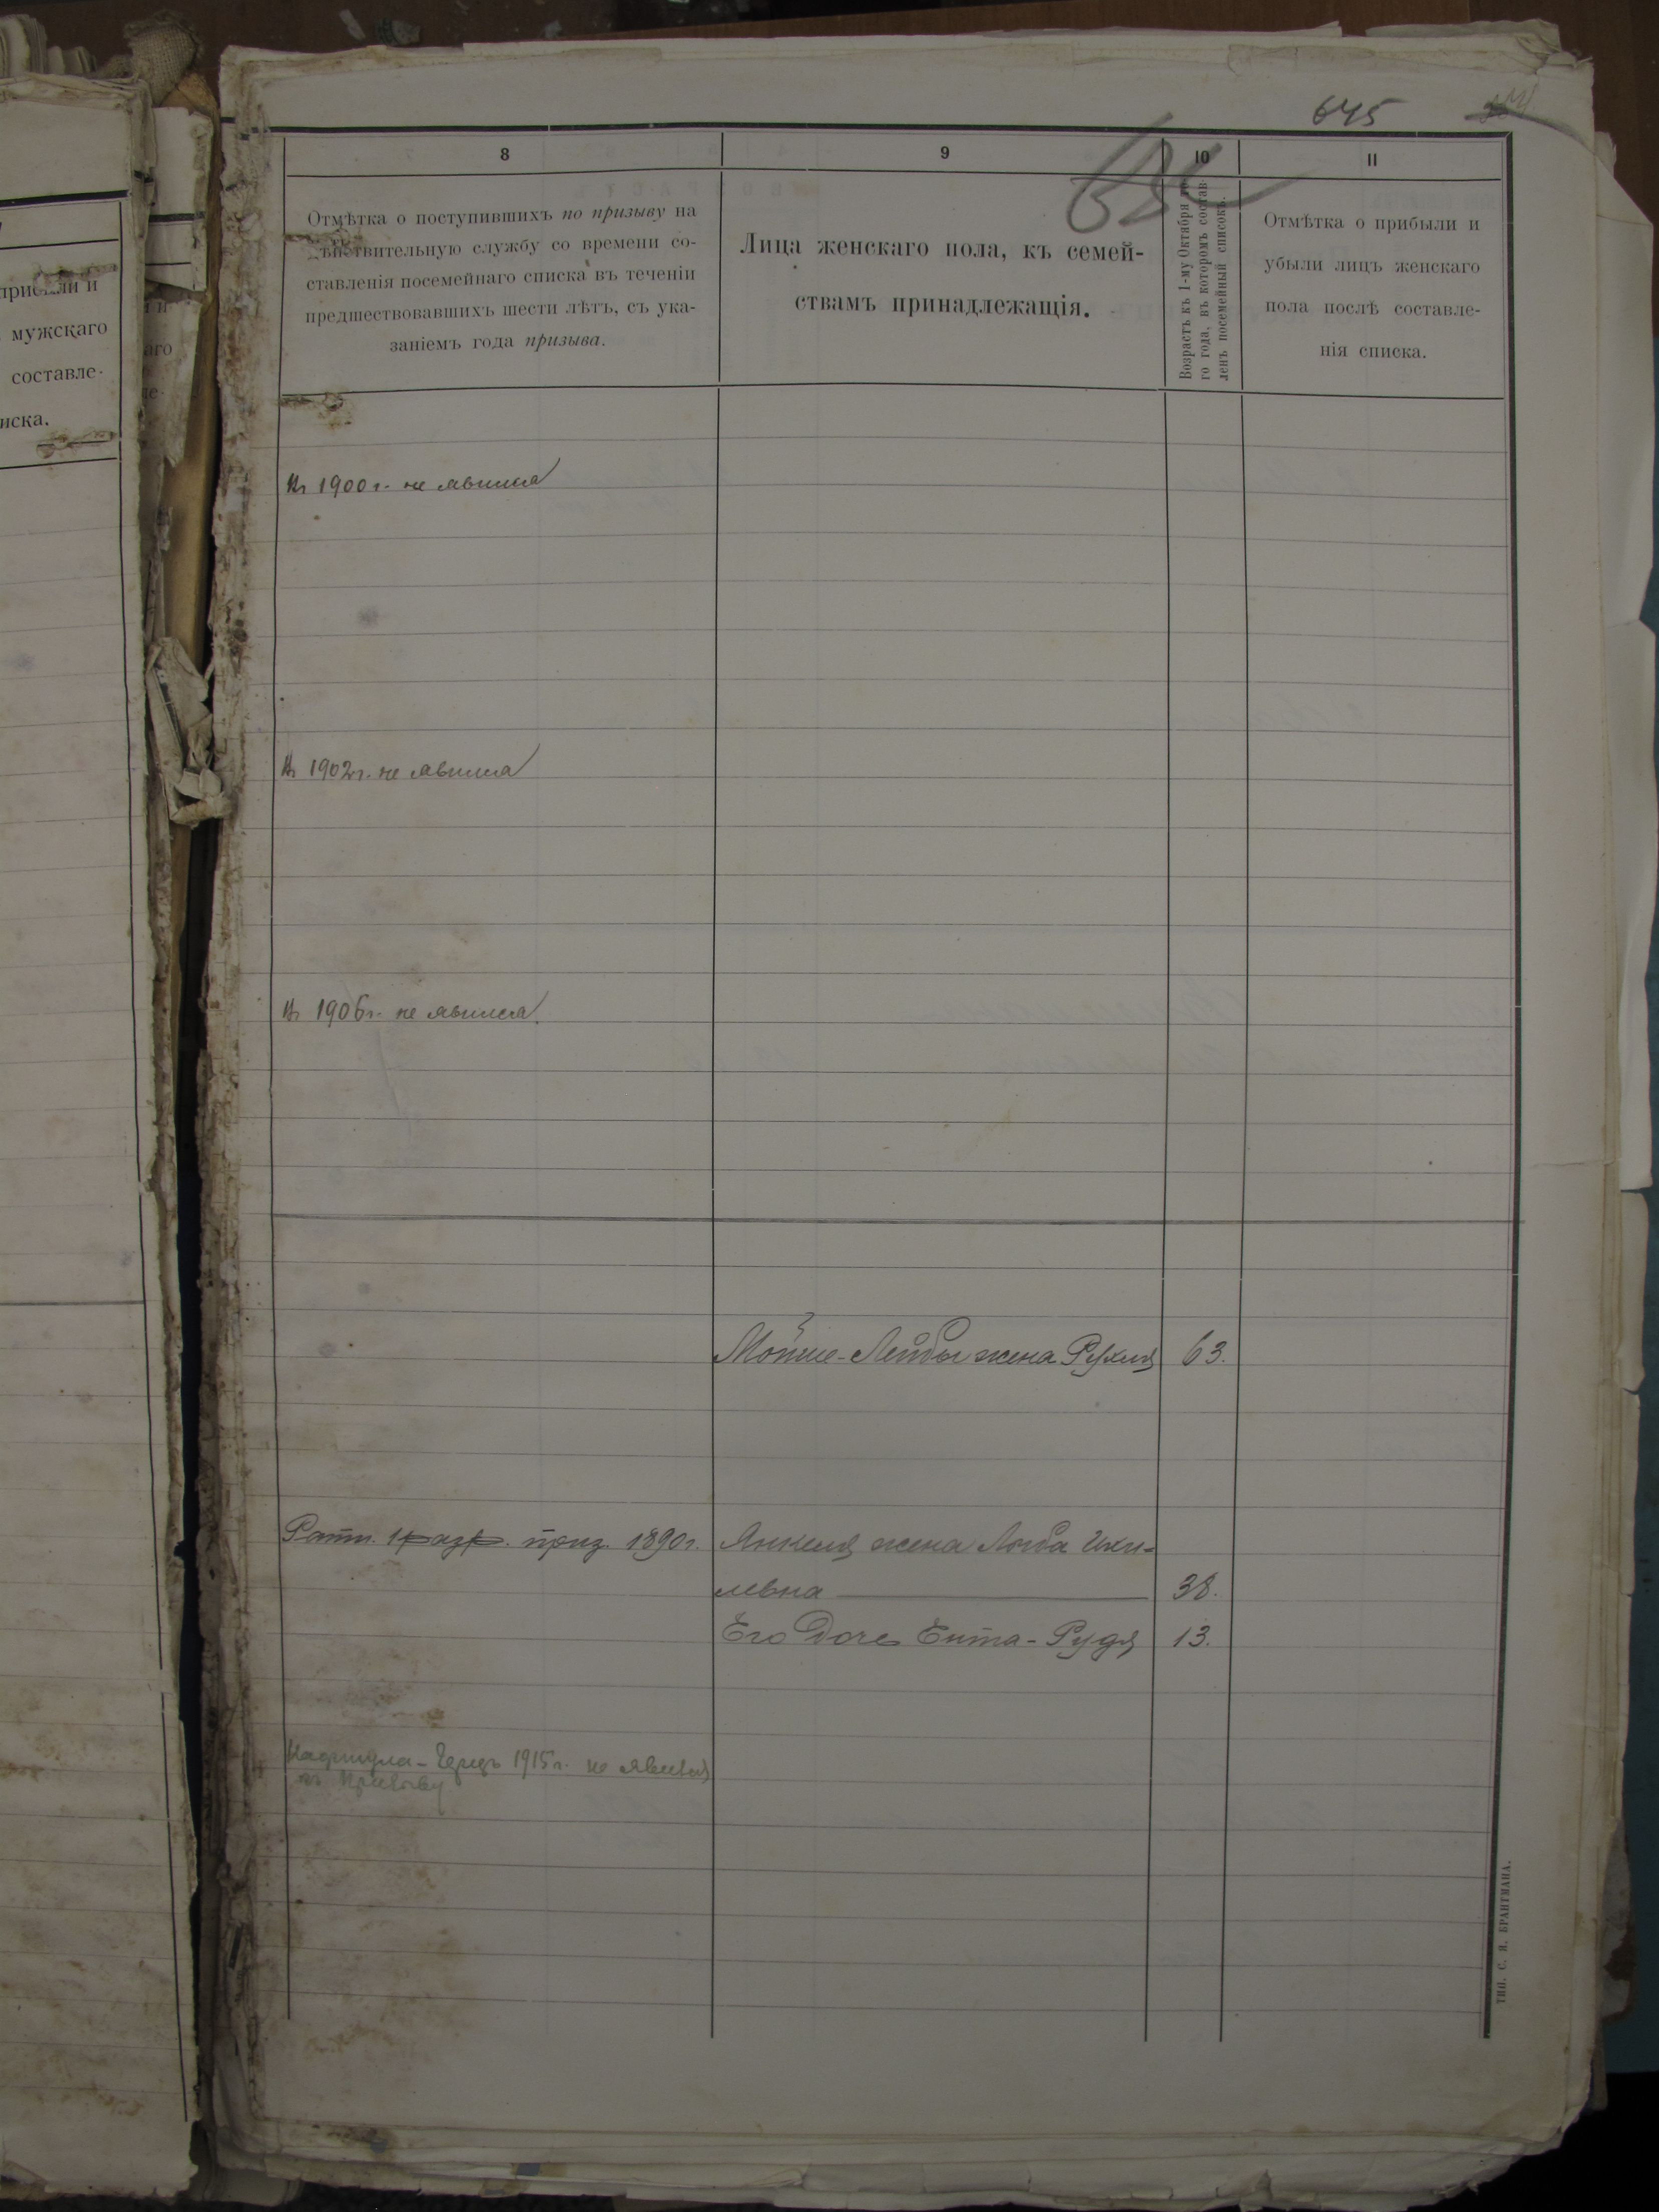 645
8
9
10
11
Отмѣтка о поступившихъ по призыву на
дѣйствительную службу со времени со-
ставленія посемейнаго списка въ теченіи
предшествовавшихъ шести лѣтъ, съ ука-
заніемъ года призыва.
Лица женскаго пола, къ семей-
ствамъ принадлежащія.
Возрастъ къ 1-му Октября то-
го года, въ которомъ состав-
ленъ посемейный списокъ.
Отмѣтка о прибыли и
убыли лицъ женскаго
пола послѣ составле-
нія списка.
прибыли и
мужскаго
составле-
иска.
Въ 1900 г. не явился
Въ 1902 г. не явился
Въ 1906 г. не явился
Мошке-Лейбы жена Рухля 63.
Ратн. 1 разр. приз. 1890 г.
Янкеля жена Хи-
левна 38.
Его дочь Ента-Рудя 13.
1915 г. не явился
къ призыву
ТИП. С. Я. БРАНТМАНА.